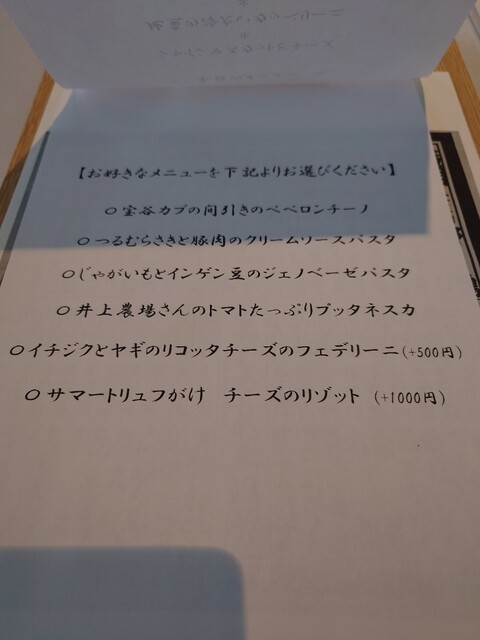 【お好きなメニューを下記よりお選びください】
○宝谷カブの間引きのペペロンチーノ
○つるむらさきと豚肉のクリームソースパスタ
○じゃがいもとインゲン豆のジェノベーゼパスタ
○井上農場さんのトマトたっぷりプッタネスカ
○イチジクとヤギのリコッタチーズのフェデリーニ(+500円)
○サマートリュフがけ チーズのリゾット (+1000円)